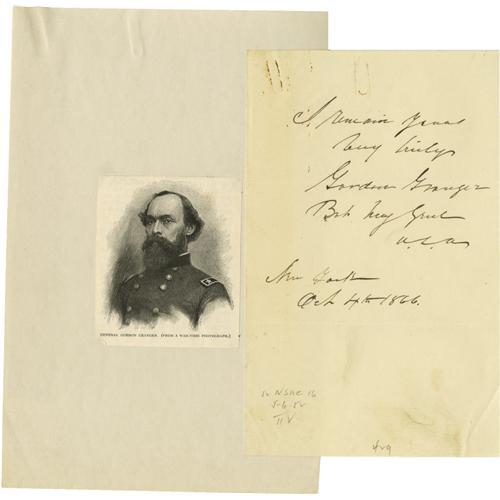 I remain yours
Very truly
Gordon Granger
Bvt Maj Genl
U.S.A
New York
Oct 4th 1866.
GENERAL GORDON GRANGER. (FROM A WAR-TIME PHOTOGRAPH.)
5-6-52
TTV
429